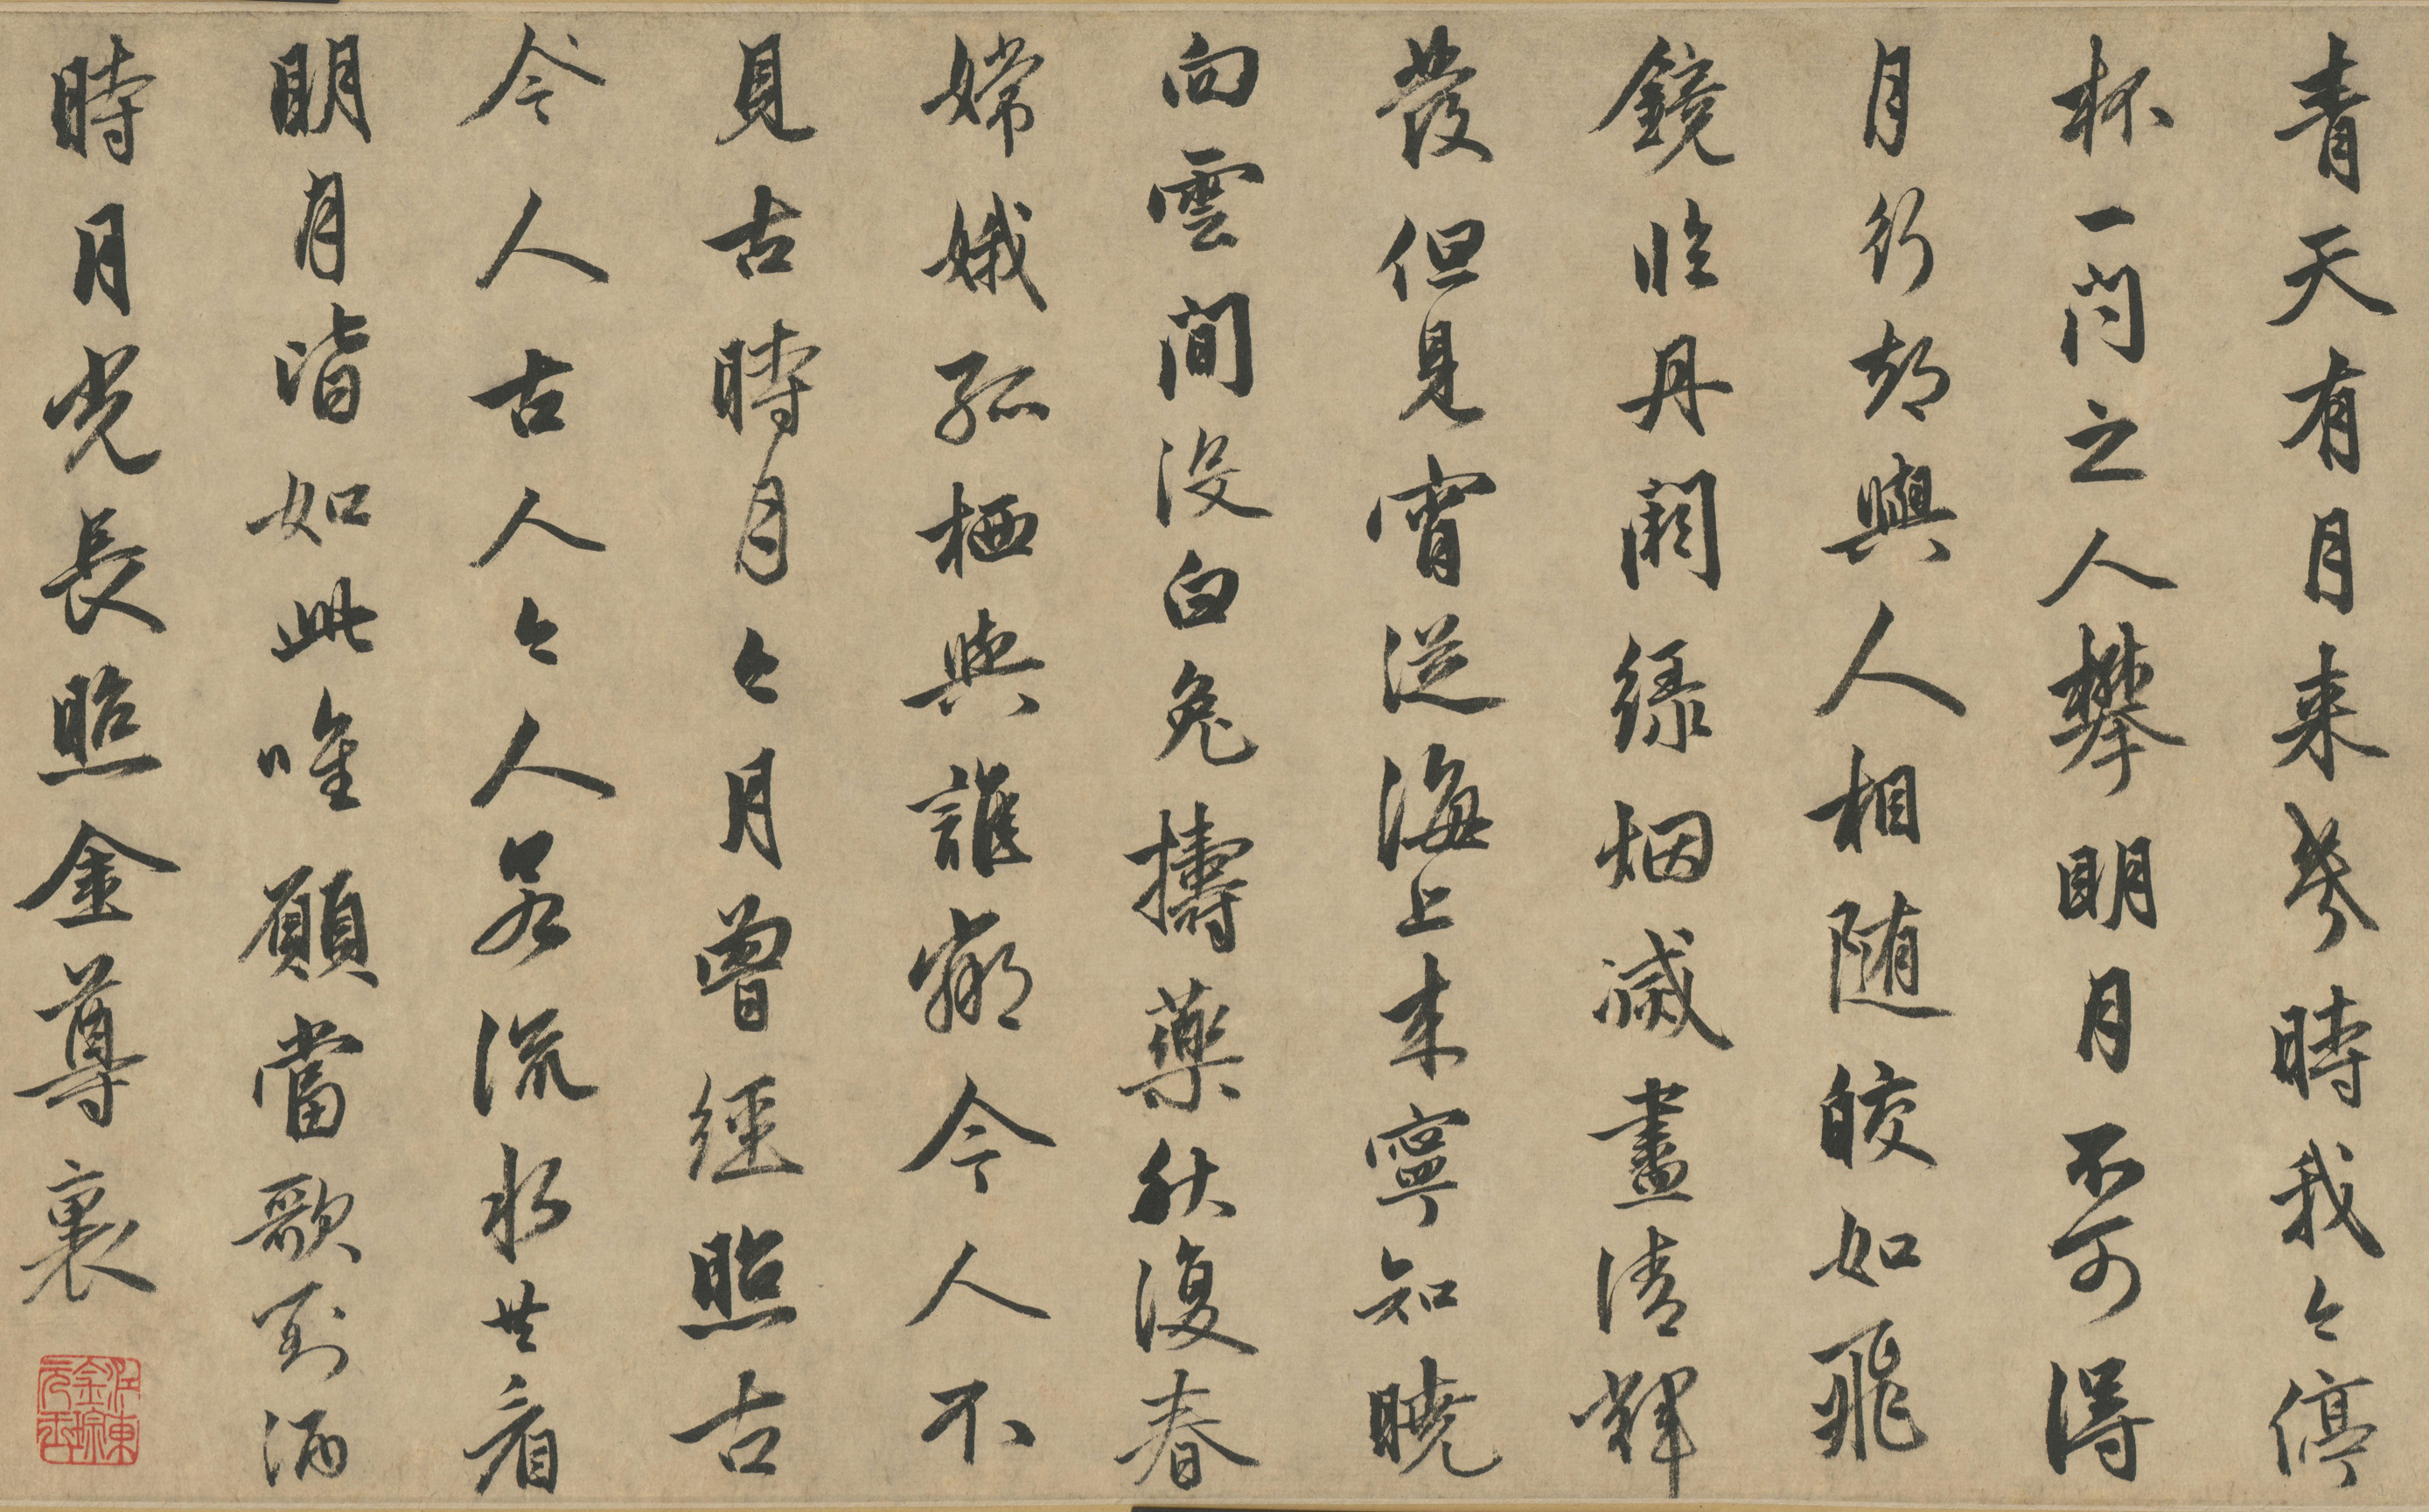 青天有月来幾時我々停
杯一问之人攀明月不可得
月行却與人相随皎如飛
鏡臨丹闕緑烟滅盡清輝
發但見宵從海上来寧知曉
向雲間没白兔擣藥秋復春
嫦娥孤栖與誰鄰今人不
見古時月々月曾經照古
今人古人々人若流水共看
明月皆如此唯願當歌對酒
時月光長照金尊裏
江東金琮元玉